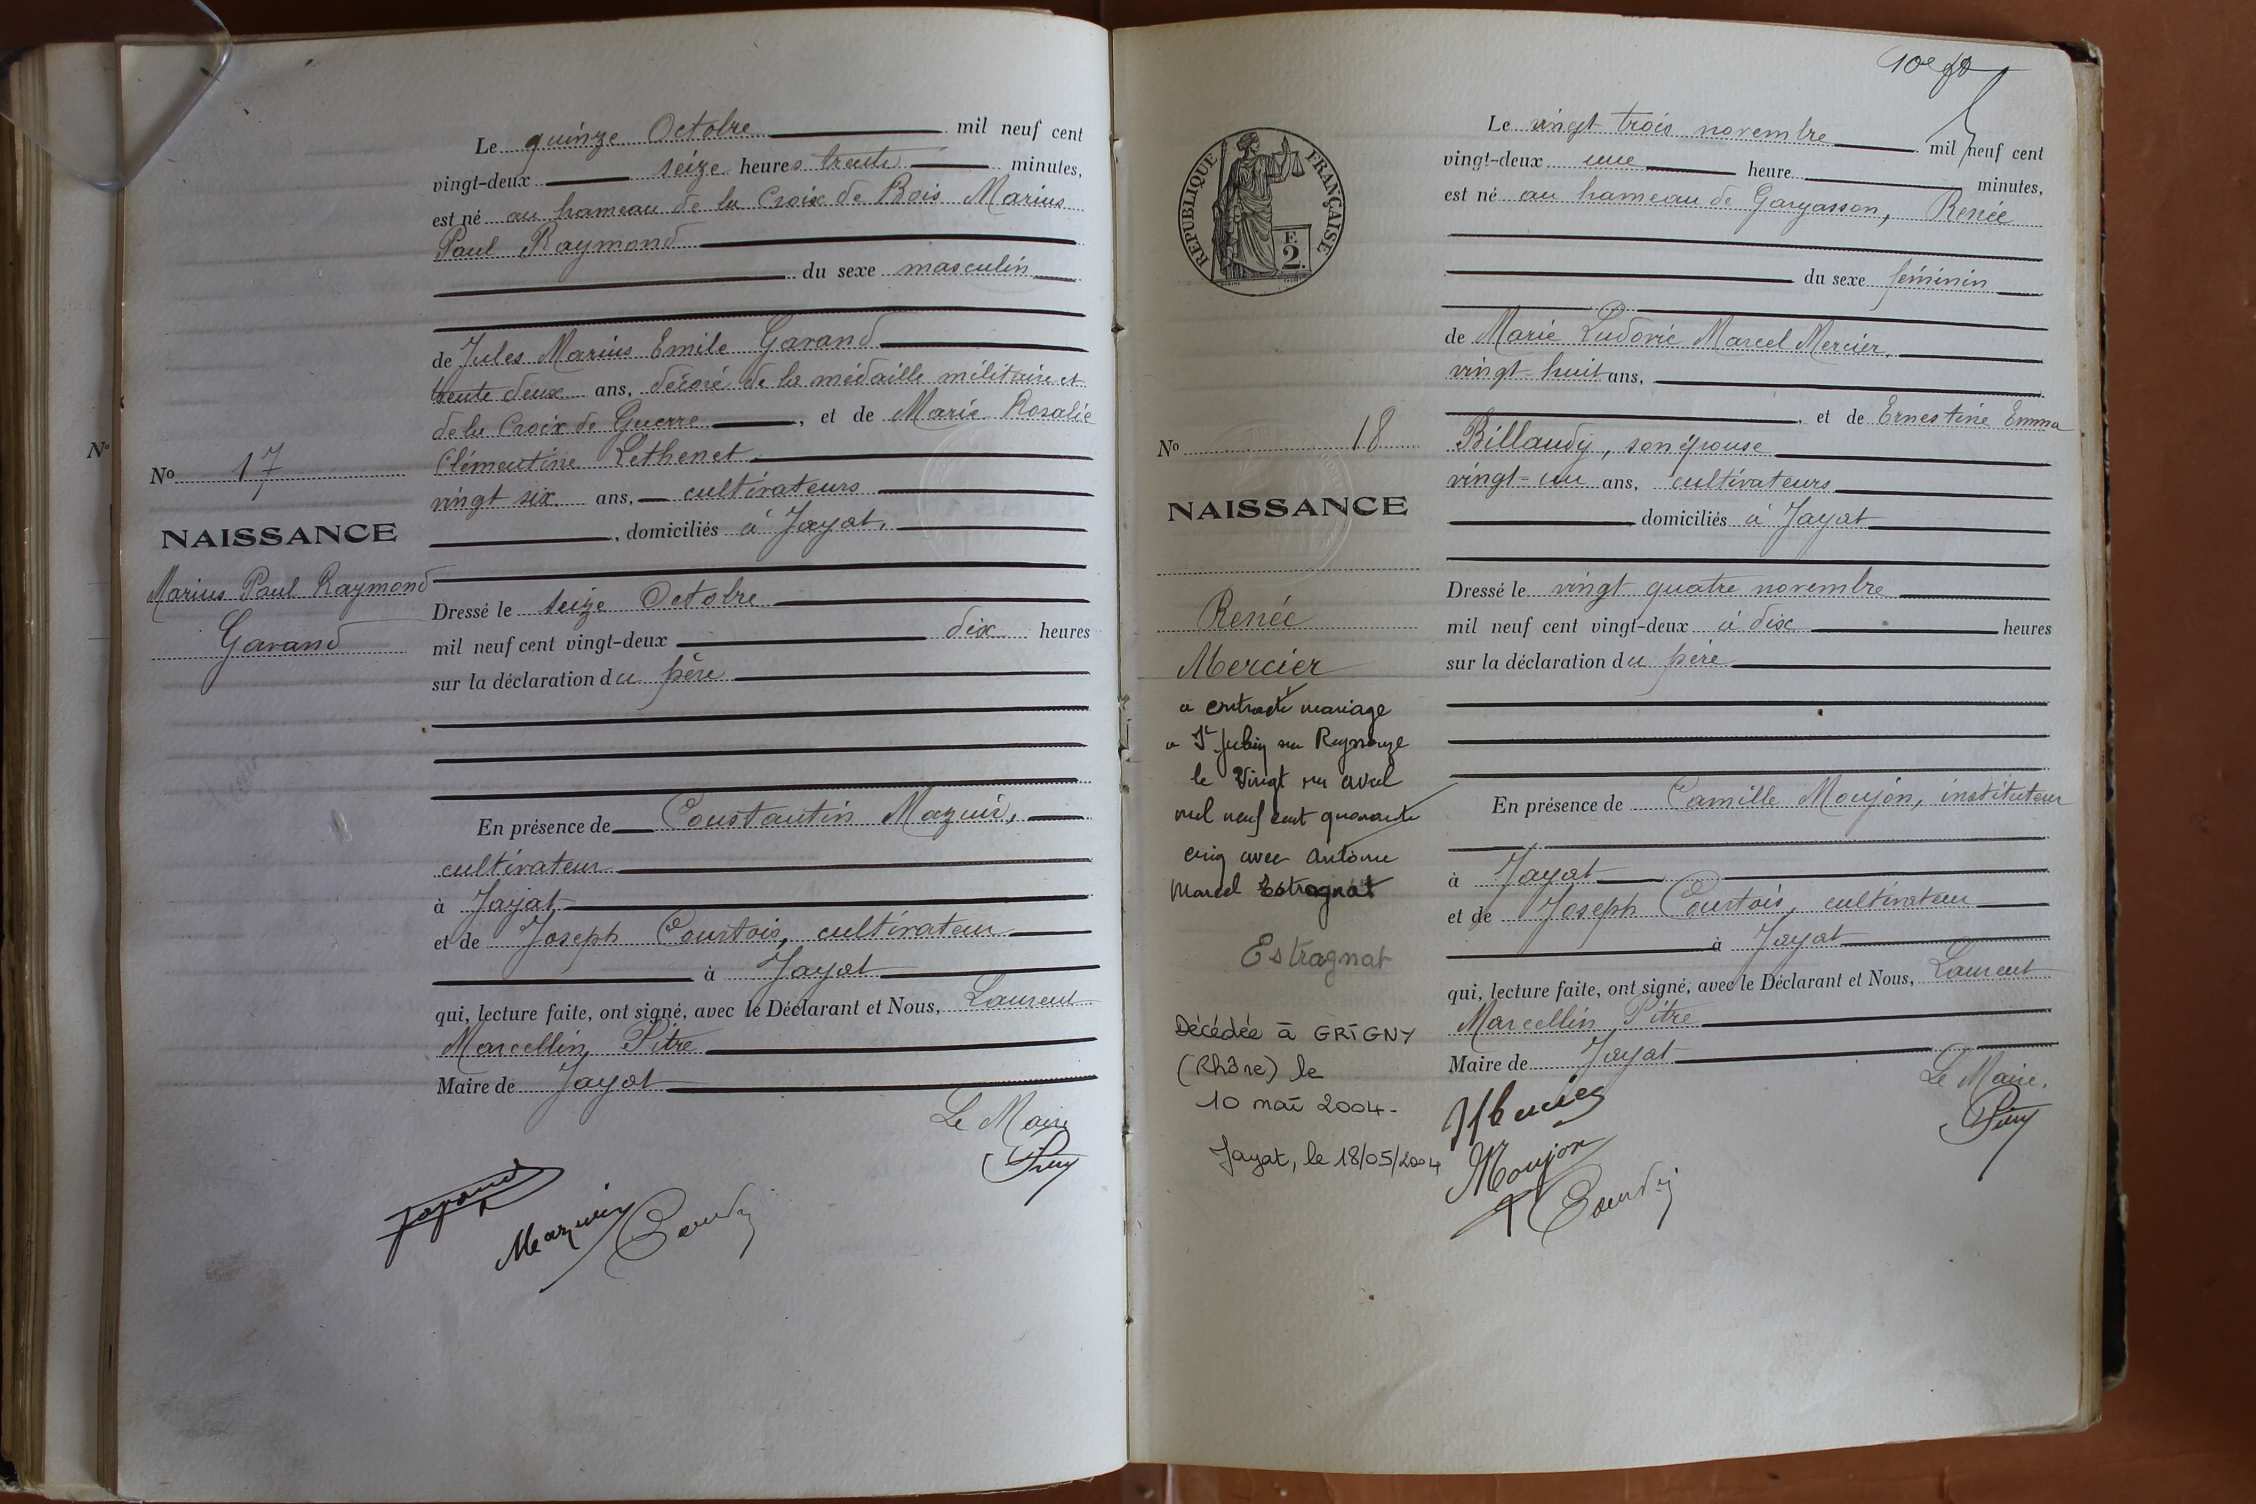 Le quinze Octobre mil neuf cent
vingt-deux seize heures trente minutes,
est né au hameau de la Croix de Bois Marius
Paul Raymond
du sexe masculin
de Jules Marius Emile Garand
trente deux ans, décoré de la médaille militaire et
de la Croix de Guerre, et de Marie Rosalie
Clémentine Lethenet
vingt six ans, cultivateurs
, domiciliés à Jayat,
Dressé le seize Octobre
mil neuf cent vingt-deux dix heures
sur la déclaration du père
En présence de Constantin Mazuir,
cultivateur
à Jayat
et de Joseph Courtois, cultivateur
à Jayat
qui, lecture faite, ont signé, avec le Déclarant et Nous, Laurent
Marcellin Pitre
Maire de Jayat
Le Maire
Mazuir
No
No 17
NAISSANCE
Marius Paul Raymond
Garand
10e
Le vingt trois novembre mil neuf cent
vingt-deux une heure minutes,
est né au hameau de Gargasson, Renée
du sexe féminin
de Marie Ludovic Marcel Mercier,
vingt-huit ans,
, et de Ernestine Emma
Billaudy, son épouse
vingt-un ans, cultivateurs
domiciliés à Jayat
Dressé le vingt quatre novembre
mil neuf cent vingt-deux à dix heures
sur la déclaration du père
En présence de Camille Moujon, instituteur
à Jayat
et de Joseph Courtois, cultivateur
à Jayat
qui, lecture faite, ont signé, avec le Déclarant et Nous, Laurent
Marcellin Pitre
Maire de Jayat
Le Maire.
Moujon
RÉPUBLIQUE FRANÇAISE
F.
2.
No 18
NAISSANCE
Renée
Mercier
a contracté mariage
a St Julien sur Reyssouze
le vingt un avril
mil neuf cent quarante
cinq avec Antoine
Marcel Estragnat
Estragnat
Décédée à GRIGNY
(Rhône) le
10 mai 2004-
Jayat, le 18/05/2004